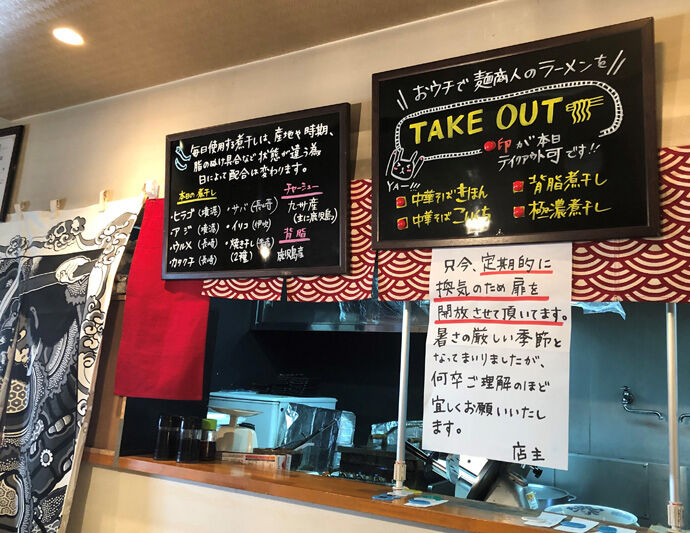 毎日使用する煮干しは、産地や時期、
脂のぬけ具合など状態が違う為、
日によって配合は変わります。
本日の煮干し
・ヒラゴ
・アジ
・ウルメ(長崎)
・カタクチ(長崎)
・サバ(長崎)
・イリコ(伊吹)
・焼き干し
(2種)
チャーシュー
九州産
(主に鹿児島)
背脂
鹿児島産
おウチで麺商人のラーメンを
TAKE OUT
印が本日
テイクアウト可です!!
YA—!!!
中華そばきほん
中華そばこいくち
背脂煮干し
極濃煮干し
只今、定期的に
換気のため扉を
開放させて頂いてます。
暑さの厳しい季節と
なってまいりましたが、
何卒ご理解のほど
宜しくお願いいたし
ます。
店主